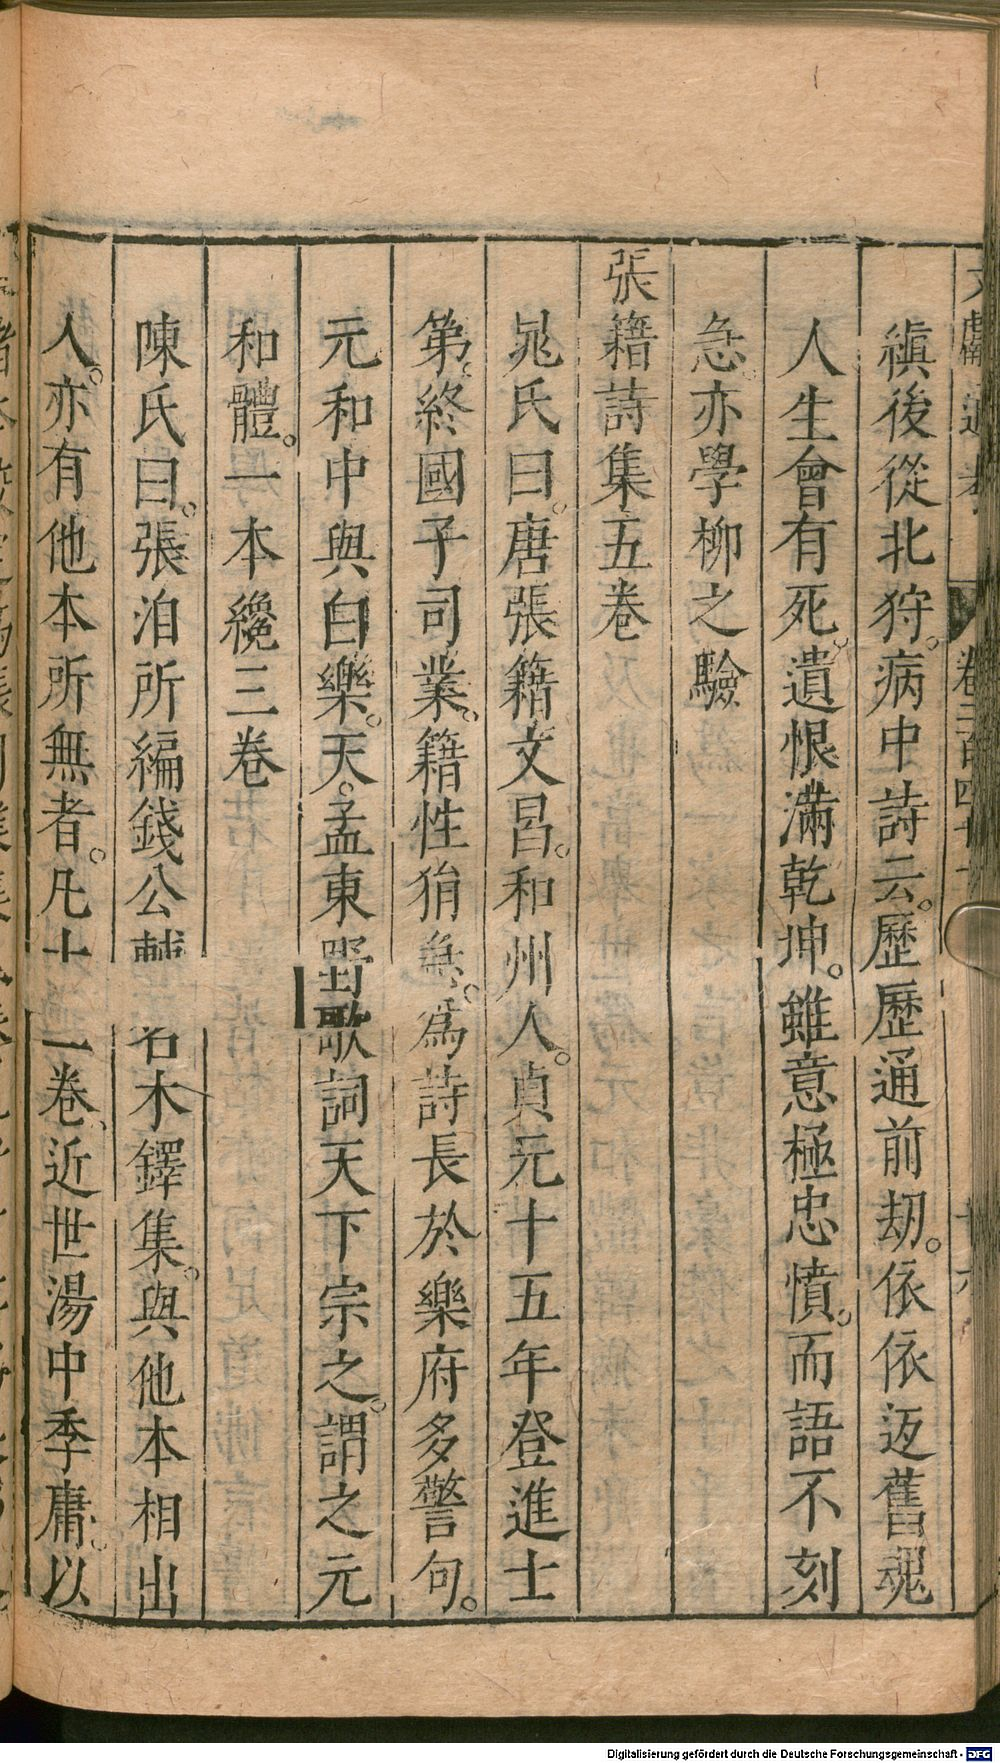 縝後從北狩。病中詩云。歷歷通前劫。依依返舊魂
人生會有死。遺恨滿乾坤。雖意極忠憤。而語不刻
急。亦學柳之驗
張籍詩集五卷
晁氏曰。唐張籍文昌。和州人。貞元十五年登進士
第。終國子司業。籍性狷急。為詩長於樂府多警句。
元和中與白樂。天。孟東野歌詞天下宗之。謂之元
和體。一本纔三卷
陳氏曰。張洎所編錢公輔名木鐸集。與他本相出
人。亦有他本所無者。凡十一卷、近世湯中季庸。以
Digitalisierung gefördert durch die Deutsche Forschungsgemeinschaft - DFG